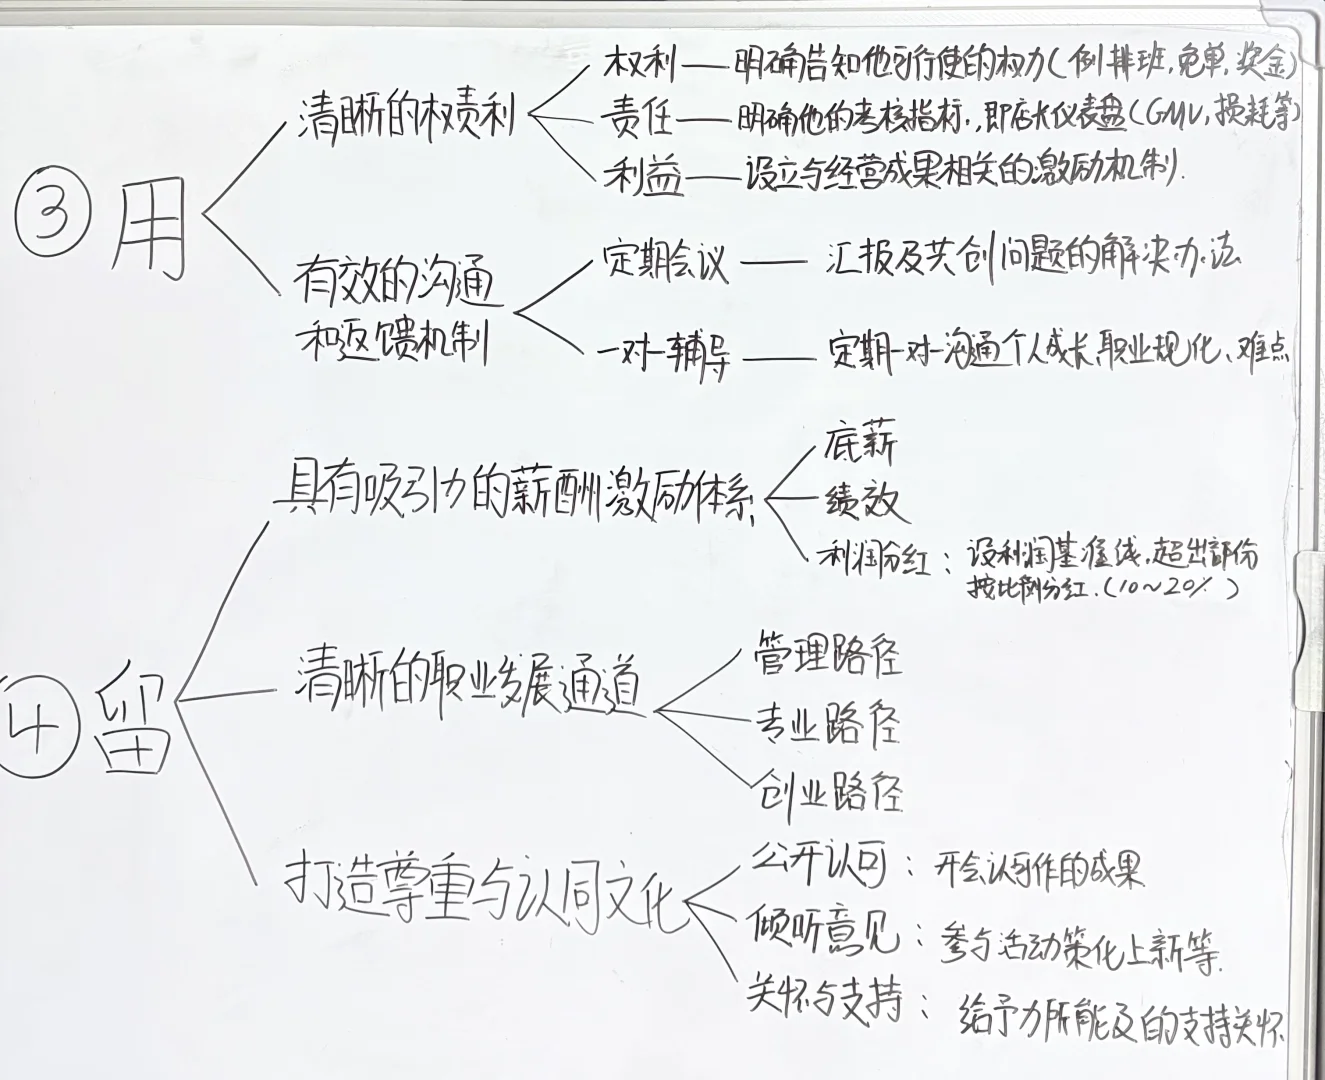 ③ 用
清晰的权责利
权利 — 明确告知他可行使的权力(例排班,免单,奖金)
责任 — 明确他的考核指标,即店长仪表盘(GMV,损耗等)
利益 — 设立与经营成果相关的激励机制.
有效的沟通
和返馈机制
定期会议 — 汇报及共创问题的解决办法
一对一辅导 — 定期一对一沟通个人成长,职业规化、难点
④ 留
具有吸引力的薪酬激励体系
底薪
绩效
利润分红：设利润基准线,超出部份
按比例分红.(10~20%)
清晰的职业发展通道
管理路径
专业路径
创业路径
打造尊重与认同文化
公开认可：开会认可作的成果
倾听意见：参与活动策化上新等.
关怀与支持：给予力所能及的支持关怀